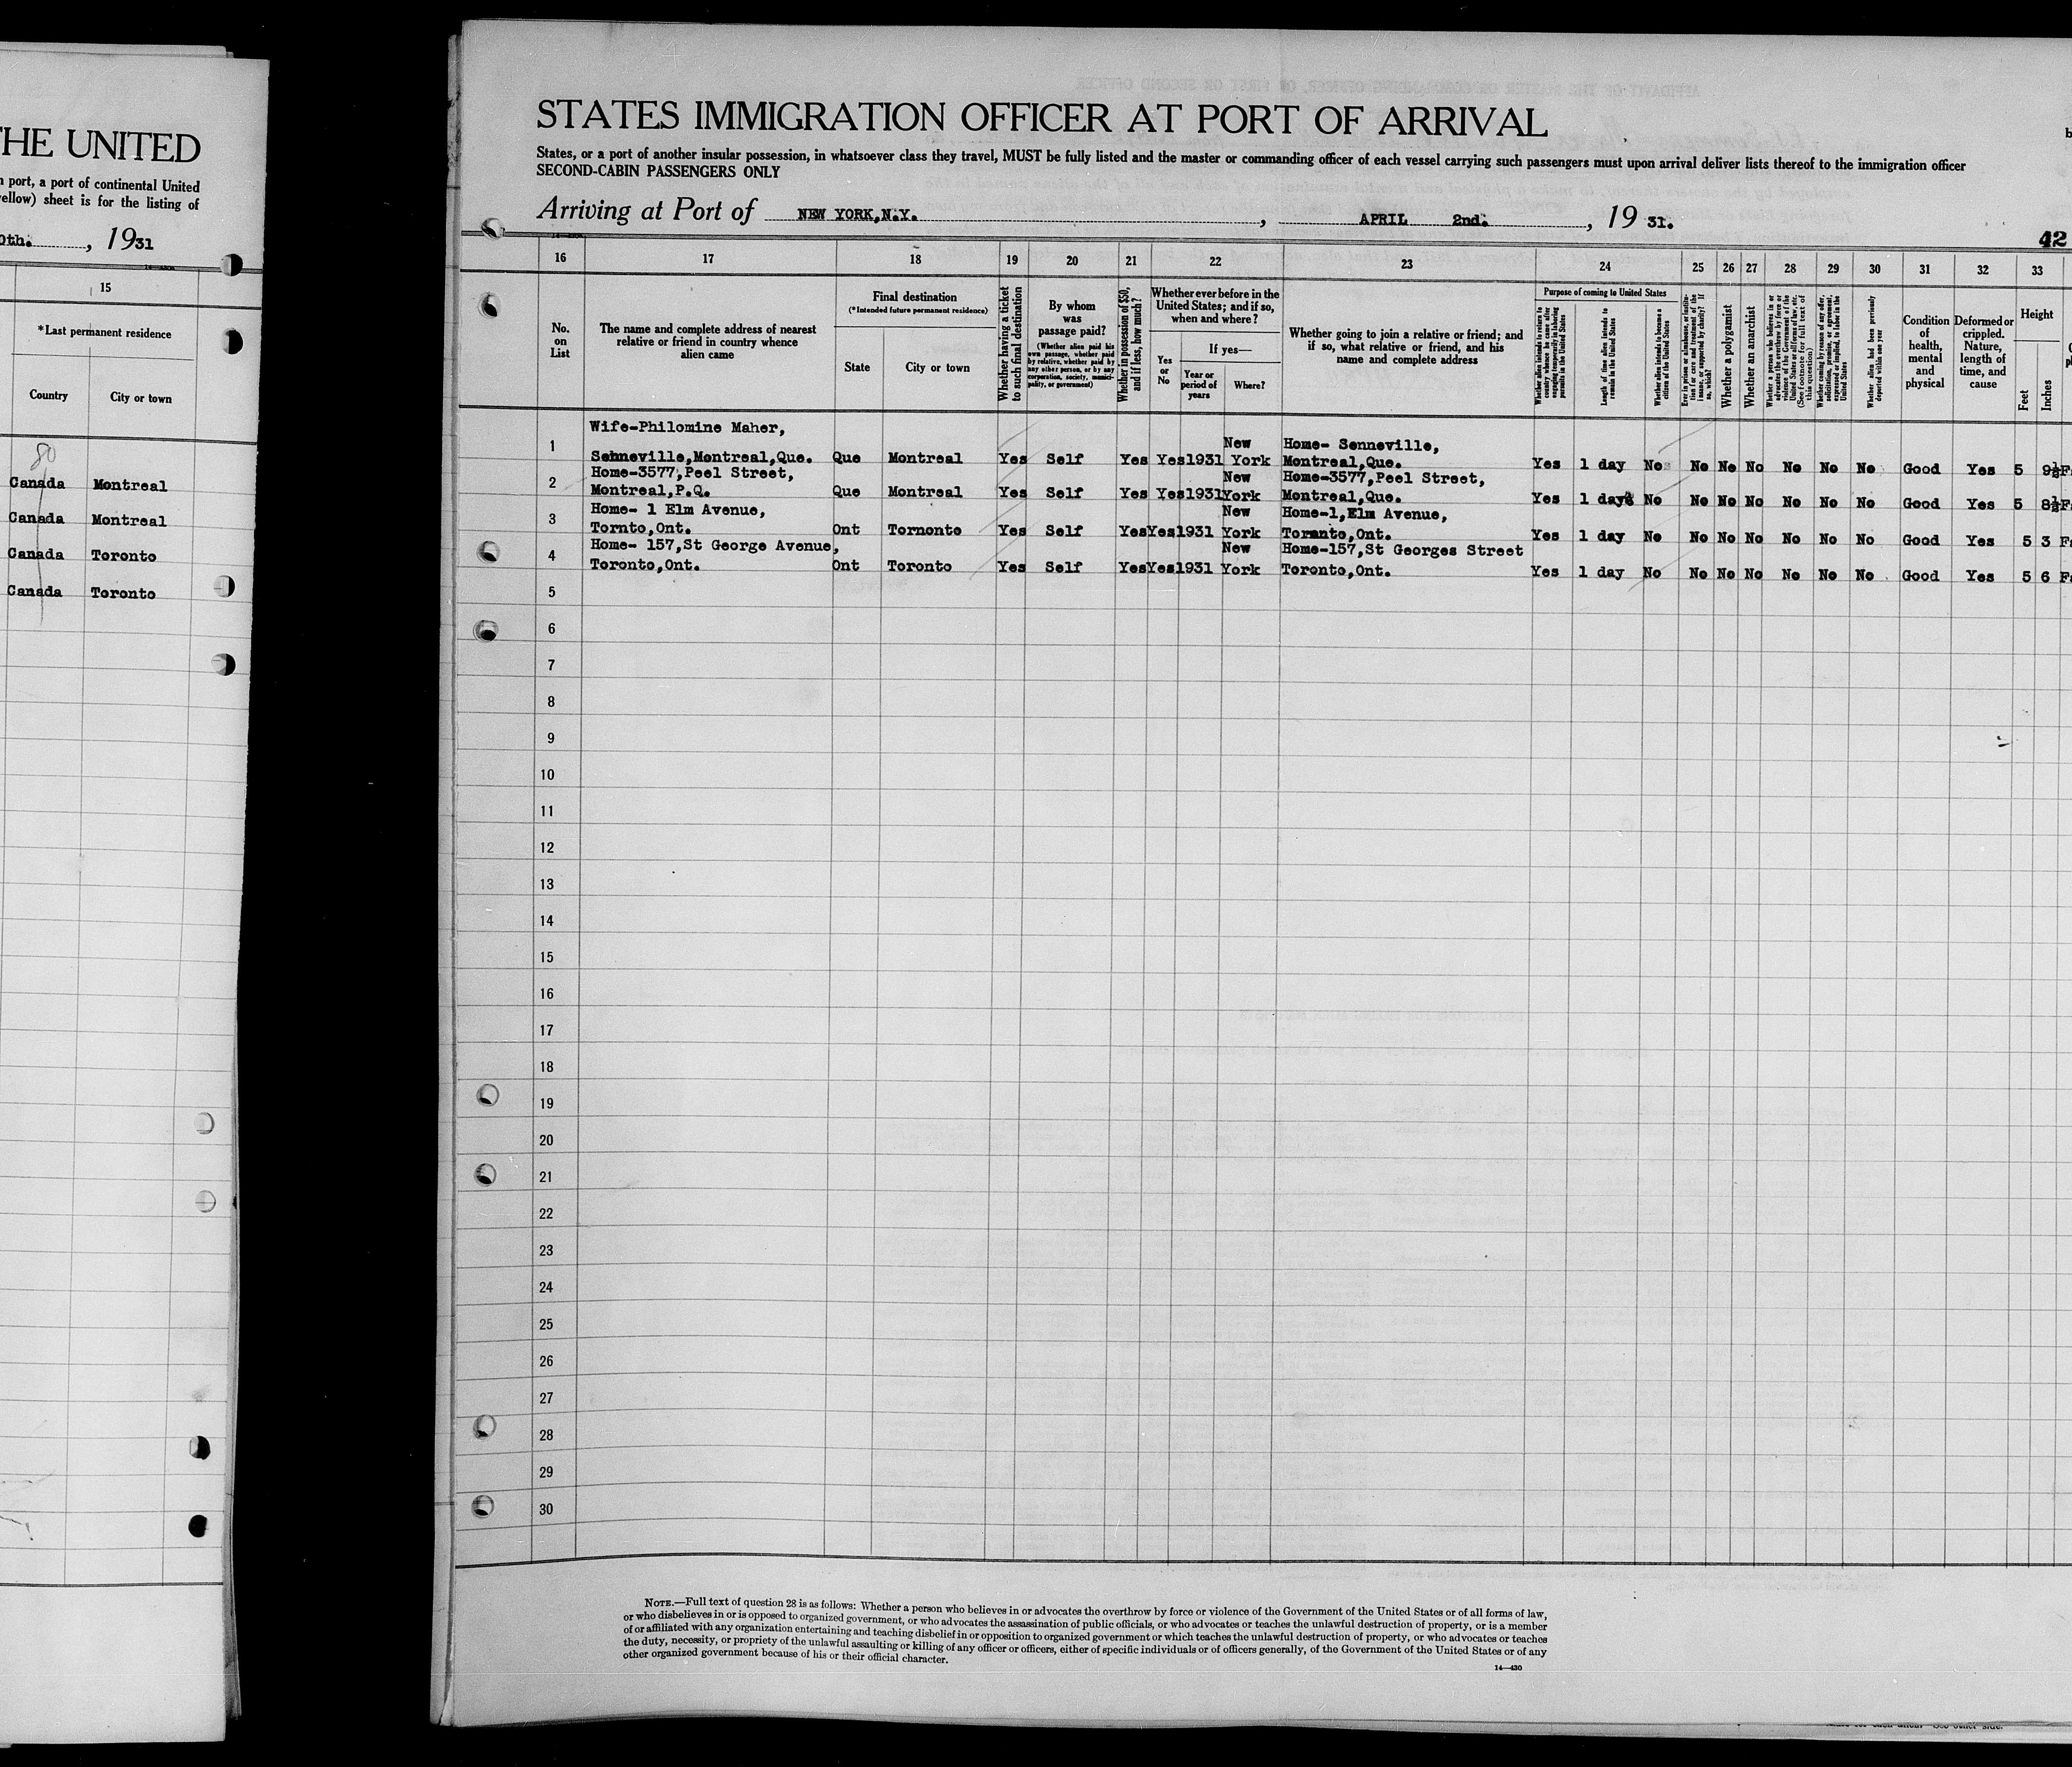 THE UNITED
port, a port of continental United
sheet is for the listing of
0th. , 1931
15
*Last permanent residence
Country City or town
80
Canada Montreal
Canada Montreal
Canada Toronto
Canada Toronto
STATES IMMIGRATION OFFICER AT PORT OF ARRIVAL
States, or a port of another insular possession, in whatsoever class they travel, MUST be fully listed and the master or commanding officer of each vessel carrying such passengers must upon arrival deliver lists thereof to the immigration officer
SECOND-CABIN PASSENGERS ONLY
Arriving at Port of NEW YORK,N.Y. , APRIL 2nd. , 19 31.
42
16 17 18 19 20 21 22 23 24 25 26 27 28 29 30 31 32 33
No. on List
The name and complete address of nearest relative or friend in country whence alien came
Final destination
(*Intended future permanent residence)
State City or town
Whether having a ticket to such final destination
By whom was passage paid?
(Whether alien paid his own passage, whether paid by relative, whether paid by any other person, or by any corporation, society, municipality, or government)
Whether in possession of $50, and if less, how much?
Whether ever before in the United States; and if so, when and where?
Yes or No
If yes—
Year or period of years
Where?
Whether going to join a relative or friend; and if so, what relative or friend, and his name and complete address
Purpose of coming to United States
Whether alien intends to return to country whence he came after engaging temporarily in laboring pursuits in the United States
Length of time alien intends to remain in the United States
Whether alien intends to become a citizen of the United States
Whether a polygamist
Whether an anarchist
(See footnote for full text of this question)
Whether coming by reason of any offer, solicitation, promise, or agreement, expressed or implied, to labor in the United States
Whether alien had been previously deported within one year
Condition of health, mental and physical
Deformed or crippled. Nature, length of time, and cause
Height
Feet Inches
Wife-Philomine Maher,
New Home- Senneville,
1 Senneville,Montreal,Que. Que Montreal Yes Self Yes Yes 1931 York Montreal,Que. Yes 1 day No No No No No No No Good Yes 5 9½
Home-3577,Peel Street, New Home-3577,Peel Street,
2 Montreal,P.Q. Que Montreal Yes Self Yes Yes 1931 York Montreal,Que. Yes 1 day No No No No No No No Good Yes 5 8½
Home- 1 Elm Avenue, New Home-1,Elm Avenue,
3 Tornto,Ont. Ont Tornonto Yes Self Yes Yes 1931 York Toronto,Ont. Yes 1 day No No No No No No No Good Yes 5 3
Home- 157,St George Avenue, New Home-157,St Georges Street
4 Toronto,Ont. Ont Toronto Yes Self Yes Yes 1931 York Toronto,Ont. Yes 1 day No No No No No No No Good Yes 5 6
5
6
7
8
9
10
11
12
13
14
15
16
17
18
19
20
21
22
23
24
25
26
27
28
29
30
NOTE.—Full text of question 28 is as follows: Whether a person who believes in or advocates the overthrow by force or violence of the Government of the United States or of all forms of law,
or who disbelieves in or is opposed to organized government, or who advocates the assassination of public officials, or who advocates or teaches the unlawful destruction of property, or is a member
of or affiliated with any organization entertaining and teaching disbelief in or opposition to organized government or which teaches the unlawful destruction of property, or who advocates or teaches
the duty, necessity, or propriety of the unlawful assaulting or killing of any officer or officers, either of specific individuals or of officers generally, of the Government of the United States or of any
other organized government because of his or their official character.
14—430